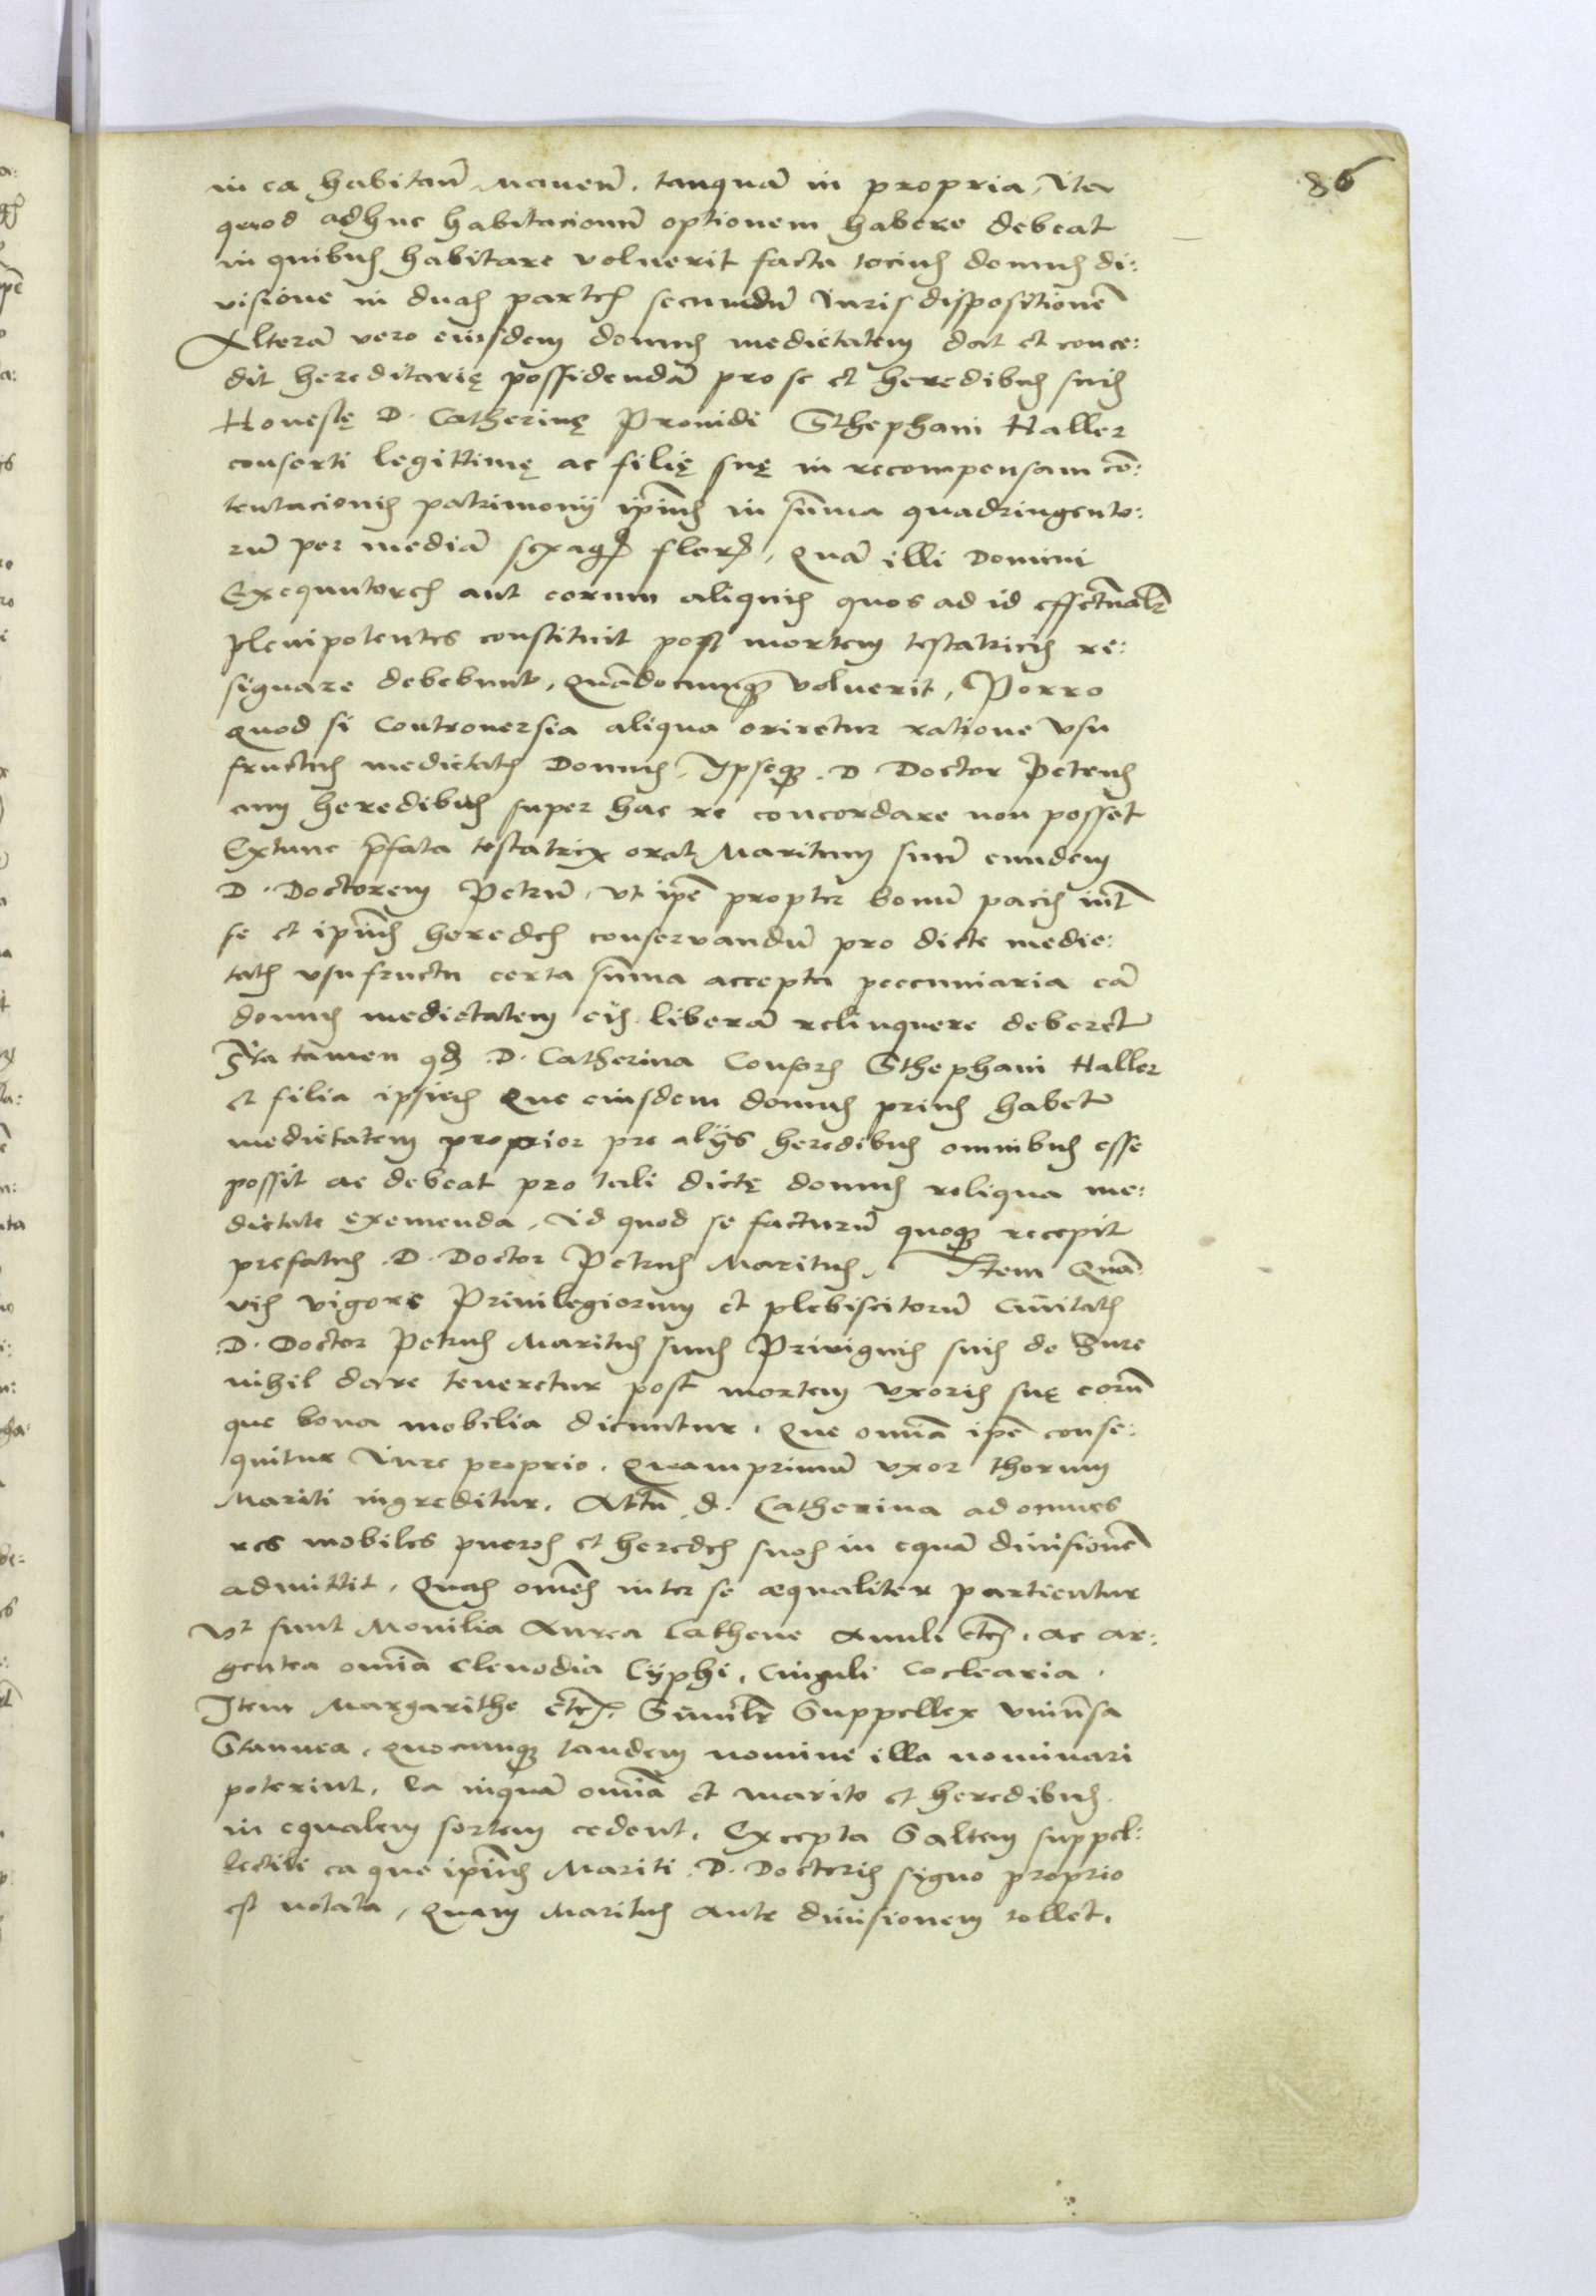 86
in ea habitanď Manenď. tanquā in propria, Ita
quod adhuc habitacionū optionem habere debeat
in quibus habitare voluerit facta tocius domus di:
visione in duas partes secundū Iuris dispositionē
Alterā vero eiusdem domus medietatem dat et conce:
dit hereditarię possidendā pro se et heredibus suis
Honestę D. Catherinę Prouidi Sthephani Haller
conserti legittimę ac filię suę in recompensam cō:
tentacionis patrimonij ipīus in sūma quadringento:
rū per mediā sexagꝫ florꝫ, Quā illi Domini
Exequutores aut eorum aliquis quos ad id effectualr̄
plenipotentes constituit post mortem testatricis re:
signare debebunt, Quādocunqꝫ voluerit, Porro
quod si Controuersia aliqua oriretur ratione Vsu
fructus medietatis Domus, Ipseqꝫ D Doctor Petrus
cum heredibus super hac re concordare non posset
Extunc p̄fata testatrix orat Maritum suū eundem
D. Doctorem Petrū, vt ipē propter bonū pacis int̄
se et ipīus heredes conservandū pro dicte medie:
tatis vsufructu certa sūma accepta peccuniaria eā
domus medietatem eis liberā relinquere deberet
Ita tamen qď D. Catherina Consors Sthephani Haller
et filia ipsius Que eiusdem domus prius habet
medietatem proprior pre alijs heredibus omnibus esse
possit ac debeat pro tali dictę domus reliqua me:
dietate exemenda, Id quod se facturū quoqꝫ recepit
prefatus D. Doctor Petrus Maritus, Item Quā:
vis vigore Priuilegiorum et plebiscitorū Ciuitatis
D. Doctor Petrus Maritus suus Privignis suis de Iure
nihil dare teneretur post mortem vxoris suę eorū
que bona mobilia dicuntur, Que omīa ipē conse:
quitur Iure proprio, Quamprimū vxor thorum
Mariti ingreditur, Attn̄ d. Catherina ad omnes
res mobiles pueros et heredes suos in equā diuisionē
admittit, Quas omēs inter se æqualiter partientur
Vt sunt Monilia Aurea Cathene Anuli etcꝫ. ac ar:
gentea omīa Clenodia Cÿphi, Cinguli Coclearia.
Item Margarithe etcꝫ. Similr̄ Suppellex vniūsa
Stannea, Quocunqꝫ tandem nomine illa nominari
poterint, Ea inquā omīa et marito et heredibus
in equalem sortem cedent, Excepta Saltem suppel:
lectili ea que ipīus Mariti D. Doctoris signo proprio
est notata, Quam Maritus ante diuisionem tollet.